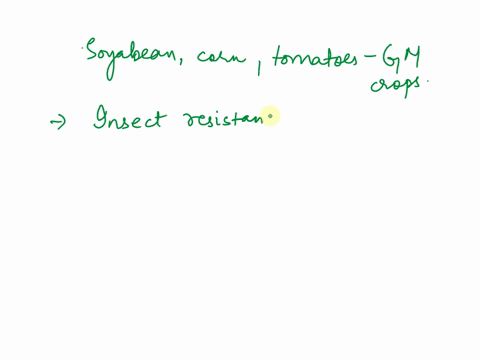 Soyabean, corn, tomatoes - GM
crops.
→ Insect resistan